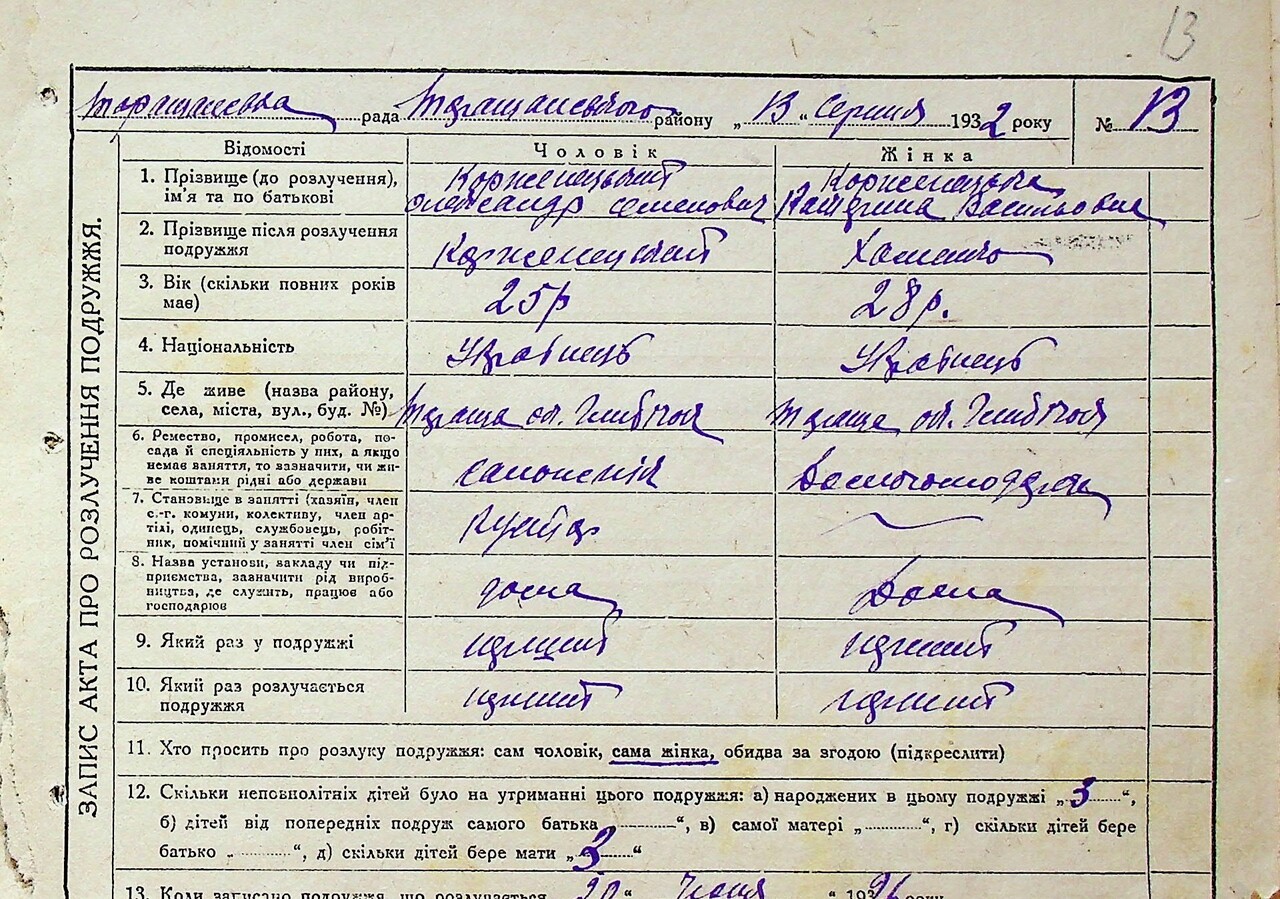 13
Таращанська рада Таращанського району „ 13 “ Серпня 1932 року № 13
ЗАПИС АКТА ПРО РОЗЛУЧЕННЯ ПОДРУЖЖЯ.
Відомості Чоловік Жінка
1. Прізвище (до розлучення), Корженецький Корженецька
ім'я та по батькові Олександр Семенович Катерина Васильовна
2. Прізвище після розлучення
подружжя Корженецький
3. Вік (скільки повних років
має) 25р 28р.
4. Національність Українець Українець
5. Де живе (назва району,
села, міста, вул., буд. №) Тараща Тараща
6. Ремество, промисел, робота, по-
сада й спеціяльність у них, а якщо
немає заняття, то зазначити, чи жи-
ве коштами рідні або держави
7. Становище в занятті (хазяїн, член
с.-г. комуни, колективу, член ар-
тілі, одинець, службовець, робіт-
ник, помічний у занятті член сім'ї Кустар
8. Назва установи, закладу чи під-
приємства, зазначити рід вироб-
ництва, де служить, працює або
господарює дома Дома
9. Який раз у подружжі перший перший
10. Який раз розлучається
подружжя перший перший
11. Хто просить про розлуку подружжя: сам чоловік, сама жінка, обидва за згодою (підкреслити)
12. Скільки неповнолітніх дітей було на утриманні цього подружжя: а) народжених в цьому подружжі „ 3 “,
б) дітей від попередніх подруж самого батька “, в) самої матері „ “, г) скільки дітей бере
батько „ “, д) скільки дітей бере мати „ 3 “
13. Коли записано подружжя, що розлучається 20 “ “ 1926 року